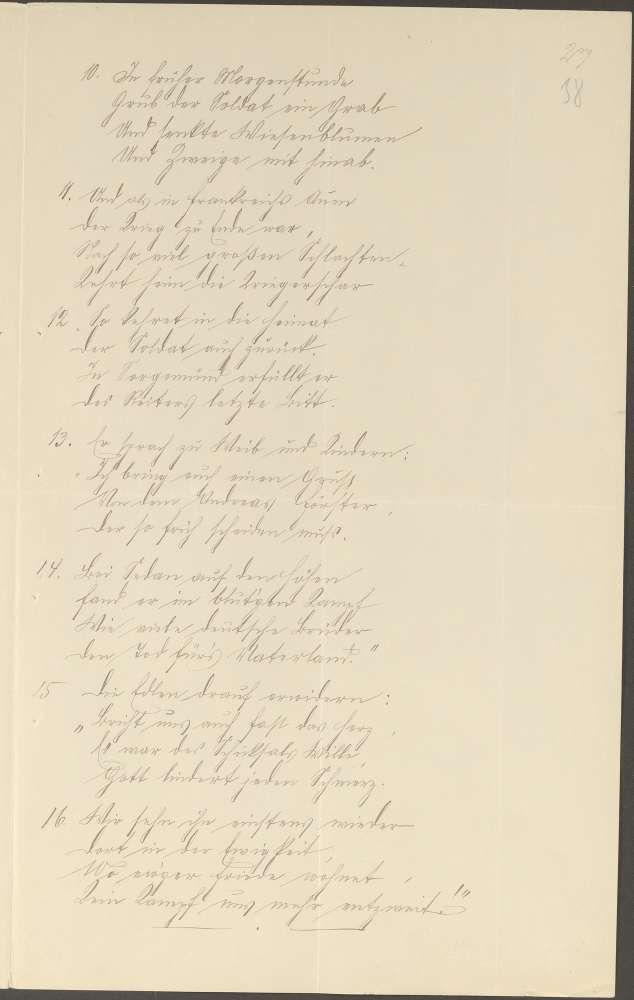 27
38
10. In früher Morgenstunde
Grub der Soldat ein Grab
Und senkte Wiesenblumen
Und Zweige mit hinab.
11. Und als in Frankreichs Auen
Der Krieg zu Ende war,
Nach so viel großen Schlachten,
Kehrt heim die Kriegerschar
12. So kehret in die Heimat
Der Soldat auch zurück.
In Sargemünd erfüllt er
Des Reiters letzte Bitt.
13. Er sprach zu Weib und Kindern:
"Ich bring euch einen Gruß
Von dem Andreas Förster,
Der so früh scheiden muß.
14. Bei Sedan auf den Höhen
fand er im blut'gen Kampf
Wie viele deutsche Brüder
Den Tod für's Vaterland."
15 Die Edlen drauf erwidern:
"Bricht uns auch fast das Herz,
Es war des Schicksals Wille,
Gott lindert jeden Schmerz.
16. Wir sehn ihn einstens wieder
Dort in der Ewigkeit,
Wo ew'ger Friede wohnet,
Kein Kampf uns mehr entzweit!"